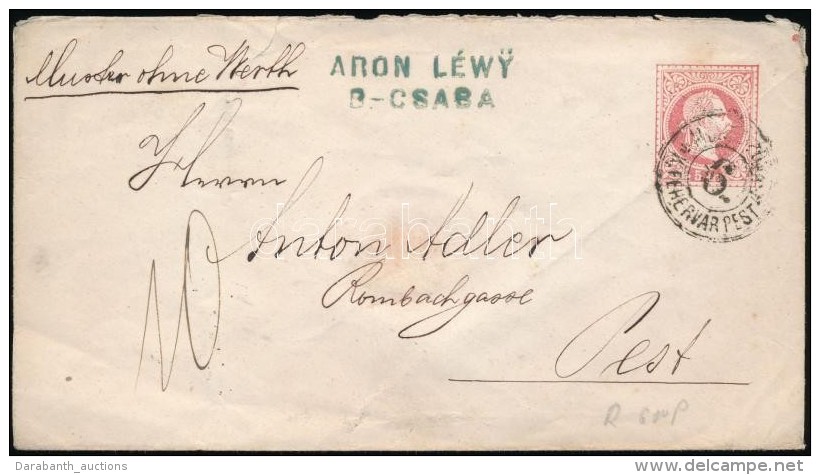 Muster ohne Werth
ARON LÉWŸ
B-CSABA
Herrn
Anton Adler
Rombachgasse
Pest
6.
K.FEHÉRVÁR PEST
10
darabanth
Darabanth_auctions
www.delcampe.net